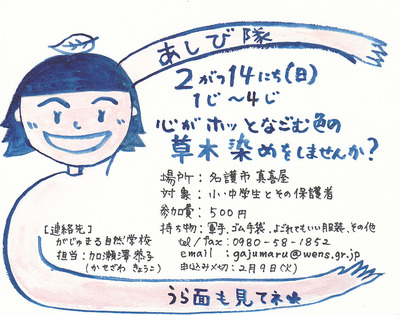 あしび隊
2がつ14にち(日)
1じ〜4じ
心がホッとなごむ色の
草木染めをしませんか?
場所:名護市真喜屋
対象:小・中学生とその保護者
参加費:500円
持ち物:軍手、ゴム手袋、よごれてもいい服装、その他
tel/fax:0980-58-1852
email:gajumaru@wens.gr.jp
申込み〆切:2月9日(火)
[連絡先]
がじゅまる自然学校
担当:加瀬澤恭子
(かせざわ きょうこ)
うら面も見てネ